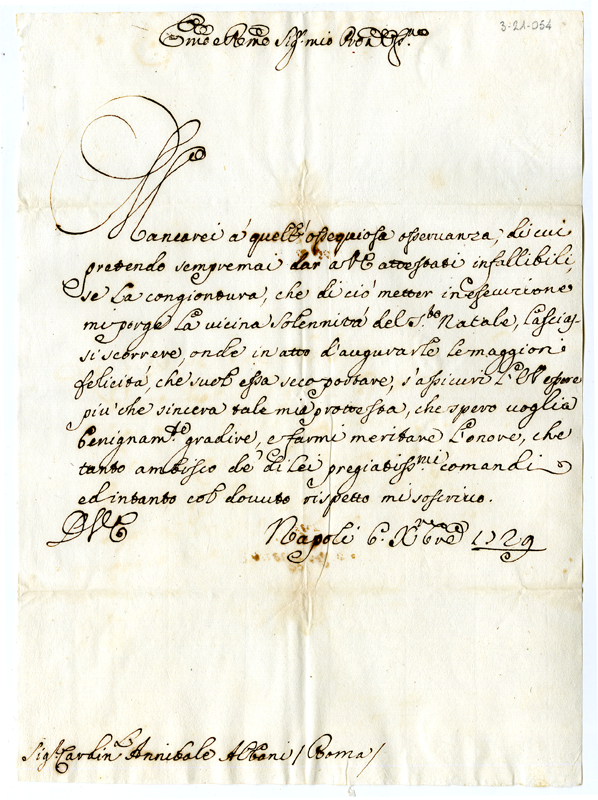 3-21-054
Emo e Rmo Sig.r mio Pron Col.mo
Mancarei à quell'ossequiosa osservanza, di cui
pretendo sempremai dar a VE attestati infallibili,
se la congiontura, che di ciò metter in esecuzione
mi porge la vicina solennità del S.to Natale, lascias-
si scorrere, onde in atto d'augurarle le maggiori
felicità, che suol essa seco portare, s'assicuri l'E.V essere
più che sincera tale mia protesta, che spero voglia
benignam.te gradire, e farmi meritare l'onore, che
tanto ambisco de' di lei pregiatiss.mi comandi
ed intanto col dovuto rispetto mi soscrivo.
DVE
Napoli 6. Xbre 1729
Sig.r Cardin.l Annibale Albani / Roma /